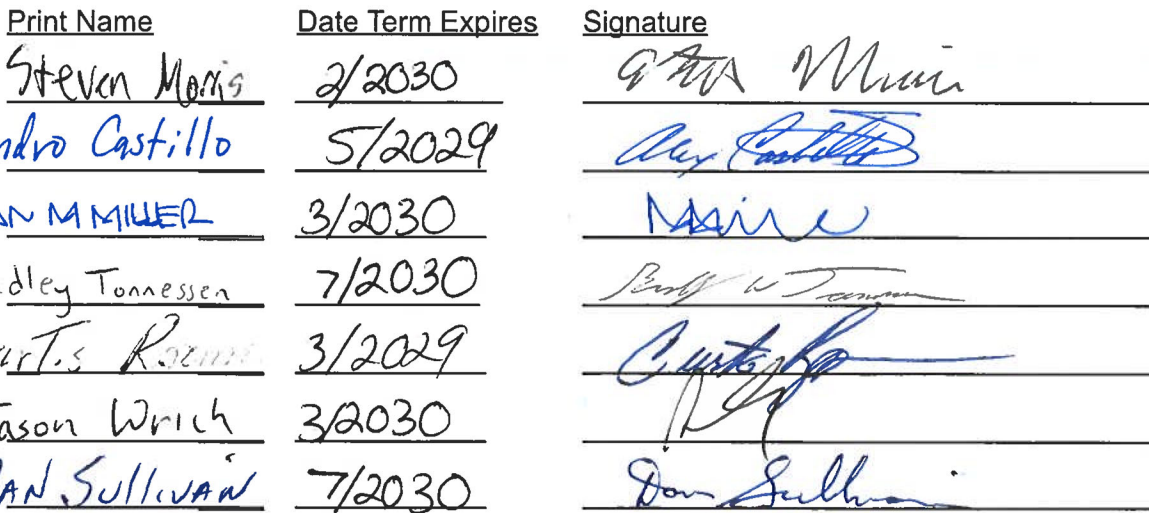 Print Name Date Term Expires Signature
Steven Morris 2/2030
ndro Castillo 5/2029 Alex Castillo
AN M MILLER 3/2030
dley Tonnessen 7/2030
urtis 3/2029 Curtis
Jason Wrich 3/2030
AN SULLIVAN 7/2030 Dan Sullivan